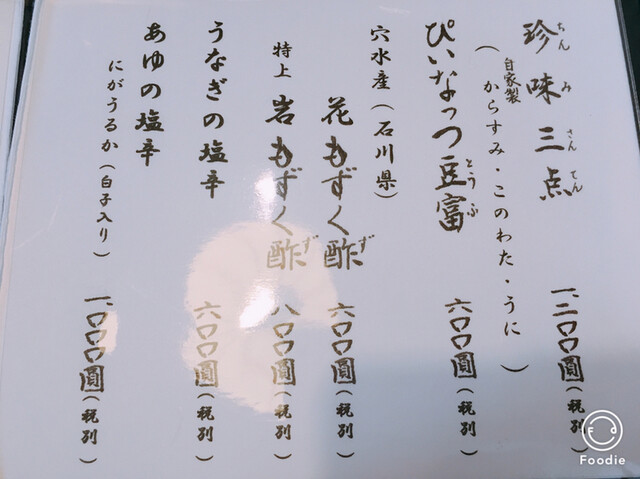 珍味三点 一、二〇〇圓(税別)
ちんみさんてん
(自家製からすみ・このわた・うに)
ぴいなっつ豆富 六〇〇圓(税別)
とうふ
穴水産(石川県)
花もずく酢 六〇〇圓(税別)
ず
特上 岩もずく酢 八〇〇圓(税別)
ず
うなぎの塩辛 六〇〇圓(税別)
あゆの塩辛
にがうるか(白子入り) 一、〇〇〇圓(税別)
Foodie